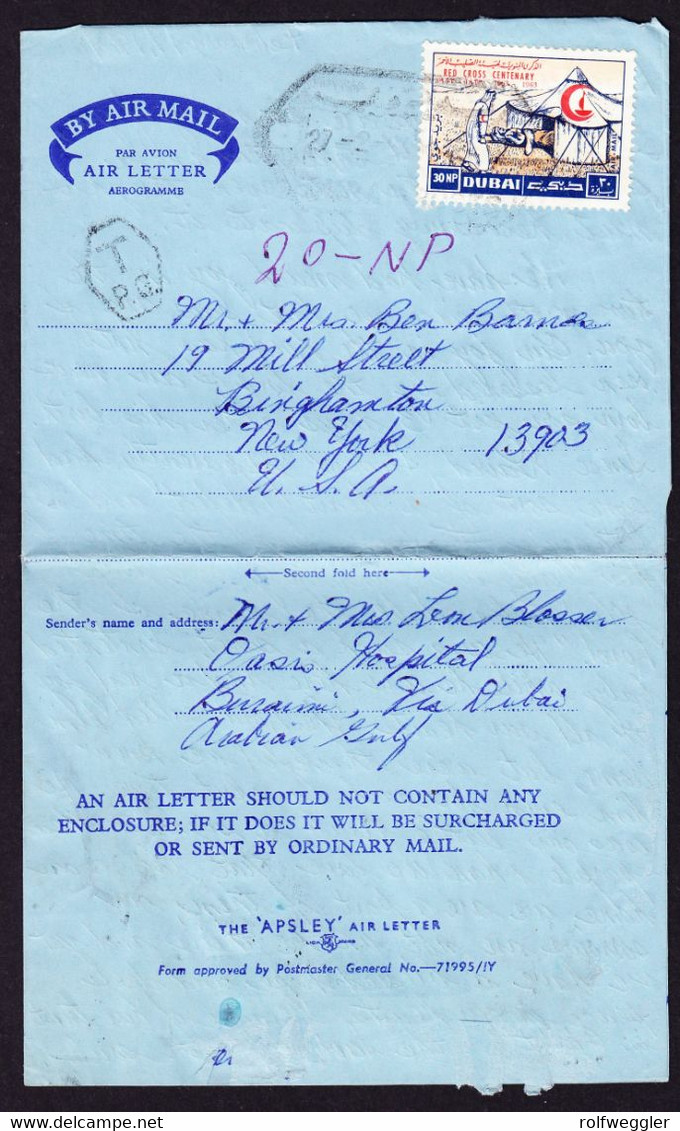 BY AIR MAIL
PAR AVION
AIR LETTER
AEROGRAMME
RED CROSS CENTENARY
AIR MAIL
30 NP DUBAI دبي ٣٠
27
T
P.O.
20-NP
Mr. + Mrs. Ben Barnes
19 Mill Street
Binghamton
New York 13903
U. S. A.
Second fold here
Sender's name and address: Mr. + Mrs. Leon Blosser
Oasis Hospital
Buraimi, Via Dubai
Arabian Gulf
AN AIR LETTER SHOULD NOT CONTAIN ANY
ENCLOSURE; IF IT DOES IT WILL BE SURCHARGED
OR SENT BY ORDINARY MAIL.
THE 'APSLEY' AIR LETTER
Form approved by Postmaster General No.—71995/1Y
rolfweggler